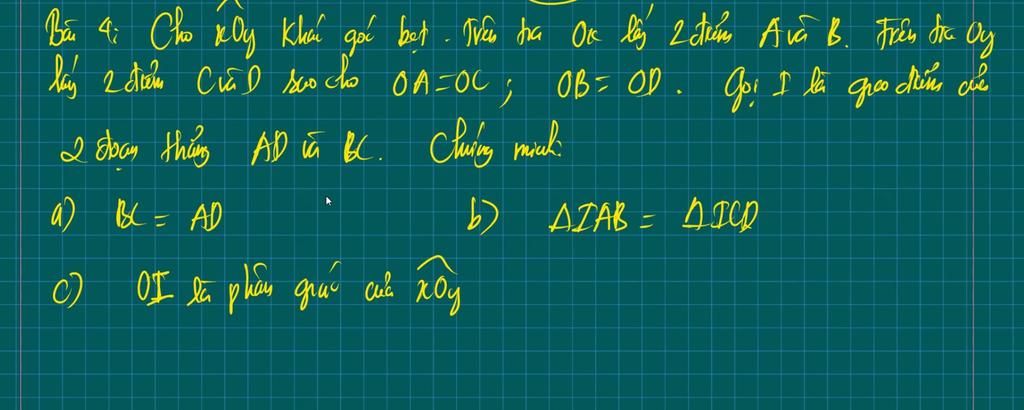 Bài 4: Cho xOy khác góc bẹt. Trên tia Ox lấy 2 điểm A và B. Trên tia Oy
lấy 2 điểm C và D sao cho OA = OC; OB = OD. Gọi I là giao điểm của
2 đoạn thẳng AD và BC. Chứng minh:
a) BC = AD b) ΔIAB = ΔICD
c) OI là phân giác của xOy